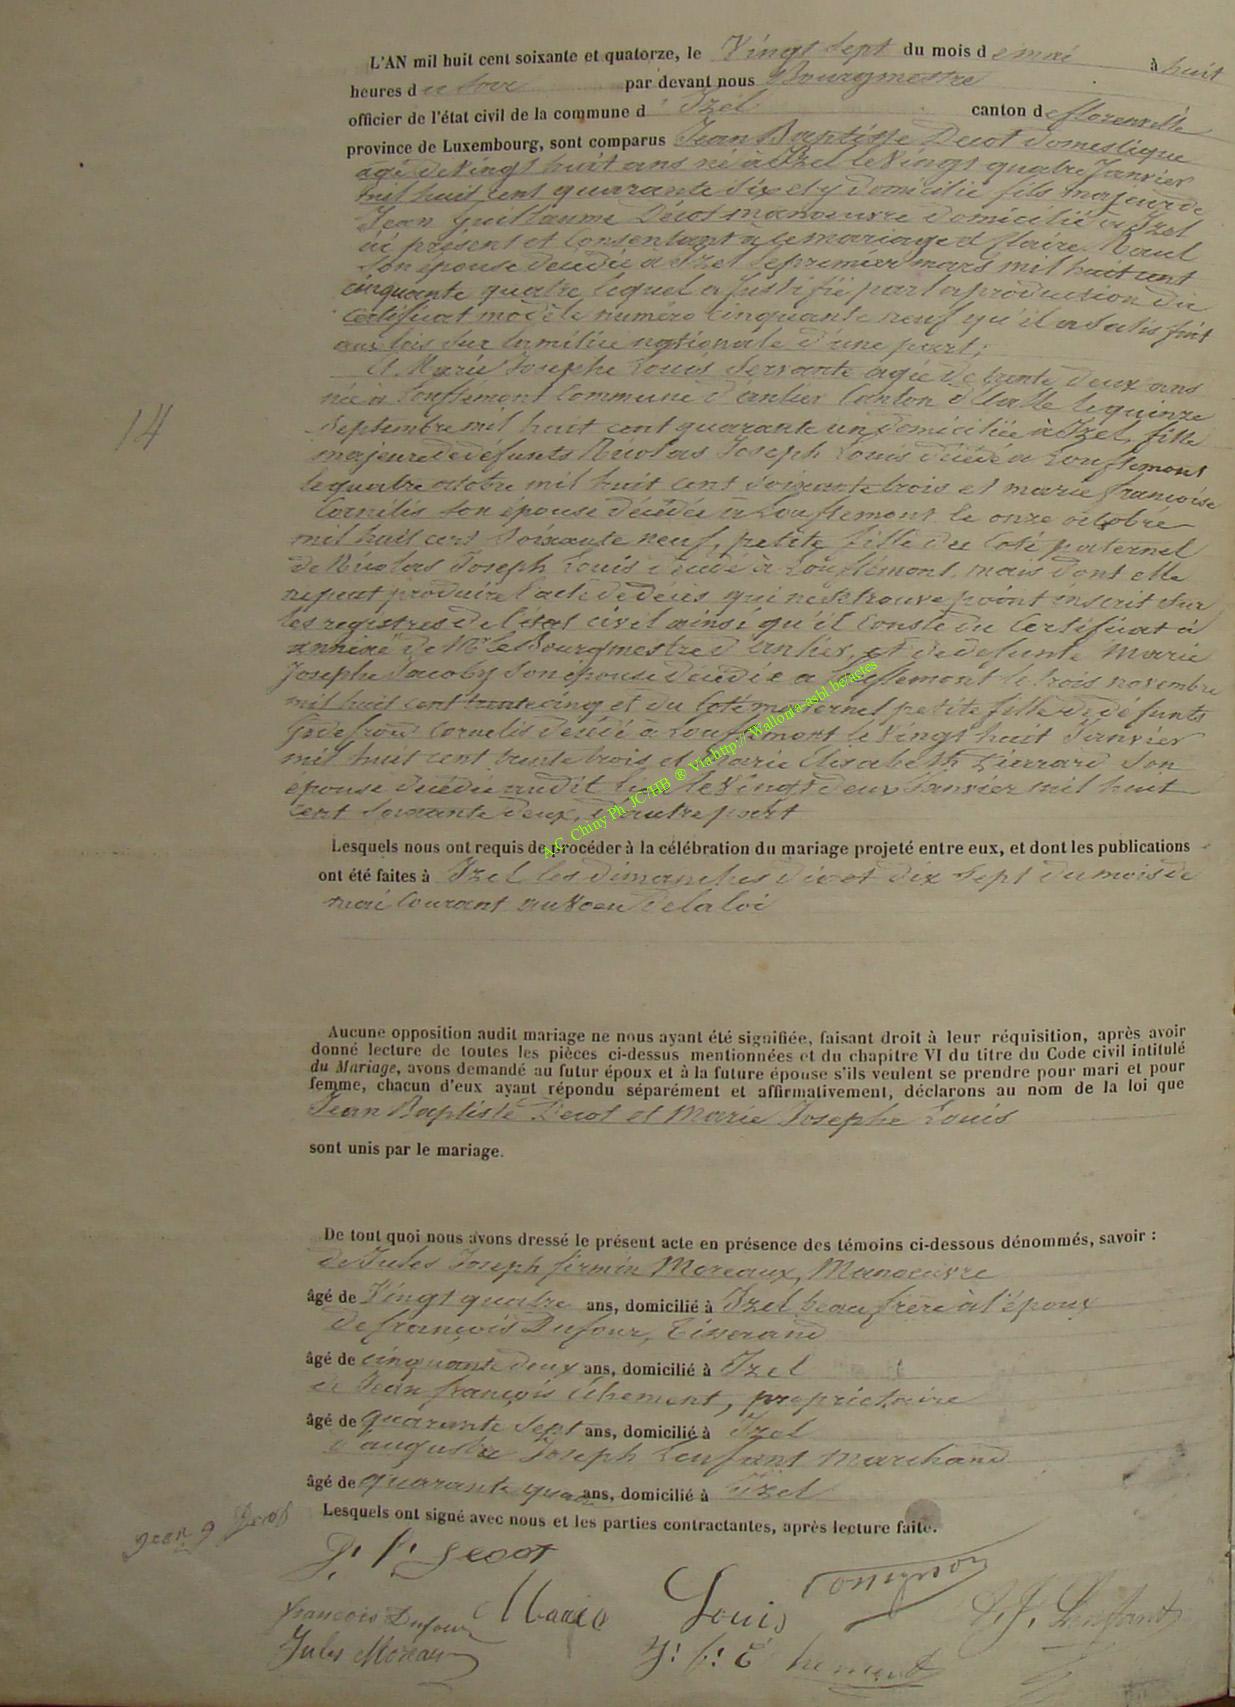 L'AN mil huit cent soixante et quatorze, le Vingt sept du mois de mai à huit
heures du soir par devant nous Bourgmestre
officier de l'état civil de la commune d'Izel canton de florenville
province de Luxembourg, sont comparus Jean Baptiste Decot domestique
agé de Vingt huit ans né à Izel le Vingt quatre Janvier
mil huit cent quarante six et y domicilié fils majeur de
Jean Guillaume Décot manoeuvre domicilié à Izel
ici présent et Consentant à ce mariage et Claire Raul
Son épouse décédée à Izel le premier mars mil huit cent
cinquante quatre, lequel a Justifié par la production du
certificat modèle numéro Cinquante neuf qu'il a Satisfait
aux lois sur la milice nationale d'une part;
Et Marie Josephe Louis Servante agée de trente deux ans
née à Louftémont Commune d'anlier Canton d'Etalle le quinze
Septembre mil huit cent quarante un domiciliée à Izel, fille
majeure de défunts Nicolas Joseph Louis décédé à Louftémont
le quatre octobre mil huit cent soixante trois et marie françoise
Cornélis son épouse décédée à Louftemont le onze octobre
mil huit cent Soixante neuf, petite fille du Coté paternel
de Nicolas Joseph Louis décédé à Louftémont, mais dont elle
ne peut produire l'acte de décès qui ne se trouve point inscrit sur
les registres de l'état civil ainsi qu'il Conste du Certificat ci
annexé de Mr le Bourgmestre d'anlier, et de défunte Marie
Josephe Jacoby Son épouse décédée à Louftemont le trois novembre
mil huit cent trente cinq et du Coté maternel petite fille de défunts
Godefroid Cornelis décédé à Louftémont le Vingt huit Janvier
mil huit cent trente trois et Marie Elisabeth Lierrard Son
épouse décédée audit lieu le Vingt deux Janvier mil huit
Cent Soixante deux, d'autre part
14
A.C. Chiny Ph. JC/HB ® Via http://Wallonia-asbl.be/actes
Lesquels nous ont requis de procéder à la célébration du mariage projeté entre eux, et dont les publications
ont été faites à Izel les dimanches dix et dix sept du mois de
mai Courant au voeu de la loi
Aucune opposition audit mariage ne nous ayant été signifiée, faisant droit à leur réquisition, après avoir
donné lecture de toutes les pièces ci-dessus mentionnées et du chapitre VI du titre du Code civil intitulé
du Mariage, avons demandé au futur époux et à la future épouse s'ils veulent se prendre pour mari et pour
femme, chacun d'eux ayant répondu séparément et affirmativement, déclarons au nom de la loi que
Jean Baptiste Decot et Marie Josephe Louis
sont unis par le mariage.
De tout quoi nous avons dressé le présent acte en présence des témoins ci-dessous dénommés, savoir :
de Jules Joseph firmin Moreaux, Manoeuvre
âgé de Vingt quatre ans, domicilié à Izel beau frère à l'époux
De françois Dufour, Tisserand
âgé de cinquante deux ans, domicilié à Izel
de Jean françois Chement, propriétaire
âgé de quarante sept ans, domicilié à Izel
d'auguste Joseph Lenfant Marchand
âgé de quarante quatre ans, domicilié à Izel
Lesquels ont signé avec nous et les parties contractantes, après lecture faite.
Jean g Decot
J. b. Decot
françois Dufour Marie Louis A. J. Lenfant
Jules Moreau J. f. Chement